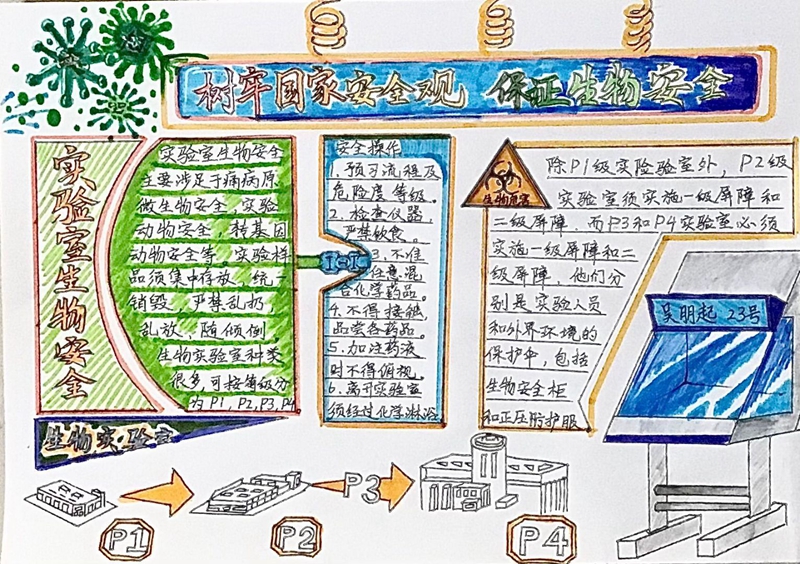 树牢国家安全观 保证生物安全
实验室生物安全
实验室生物安全
主要涉足于病病原
微生物安全，实验
动物安全，转基因
动物安全等，实验样
品须集中存放，统一
销毁，严禁乱扔，
乱放、随倾倒，
生物实验室种类
很多，可按等级分
为P1,P2,P3,P4
安全操作
1.预习流程及
危险度等级。
2.检查仪器，
严禁饮食。
3.不准
任意混
合化学药品。
4.不得接触，
品尝各药品。
5.加注药液
时不得俯视。
6.离开实验室
须经过化学淋浴
生物危害
除P1级实险验室外，P2级
实验室须实施一级屏障和
二级屏障，而P3和P4实验室必须
实施一级屏障和二
级屏障，他们分
别是实验人员
和外界环境的
保护伞，包括
生物安全柜
和正压防护服
吴明起 23号
生物实验室
P1
P2
P3
P4